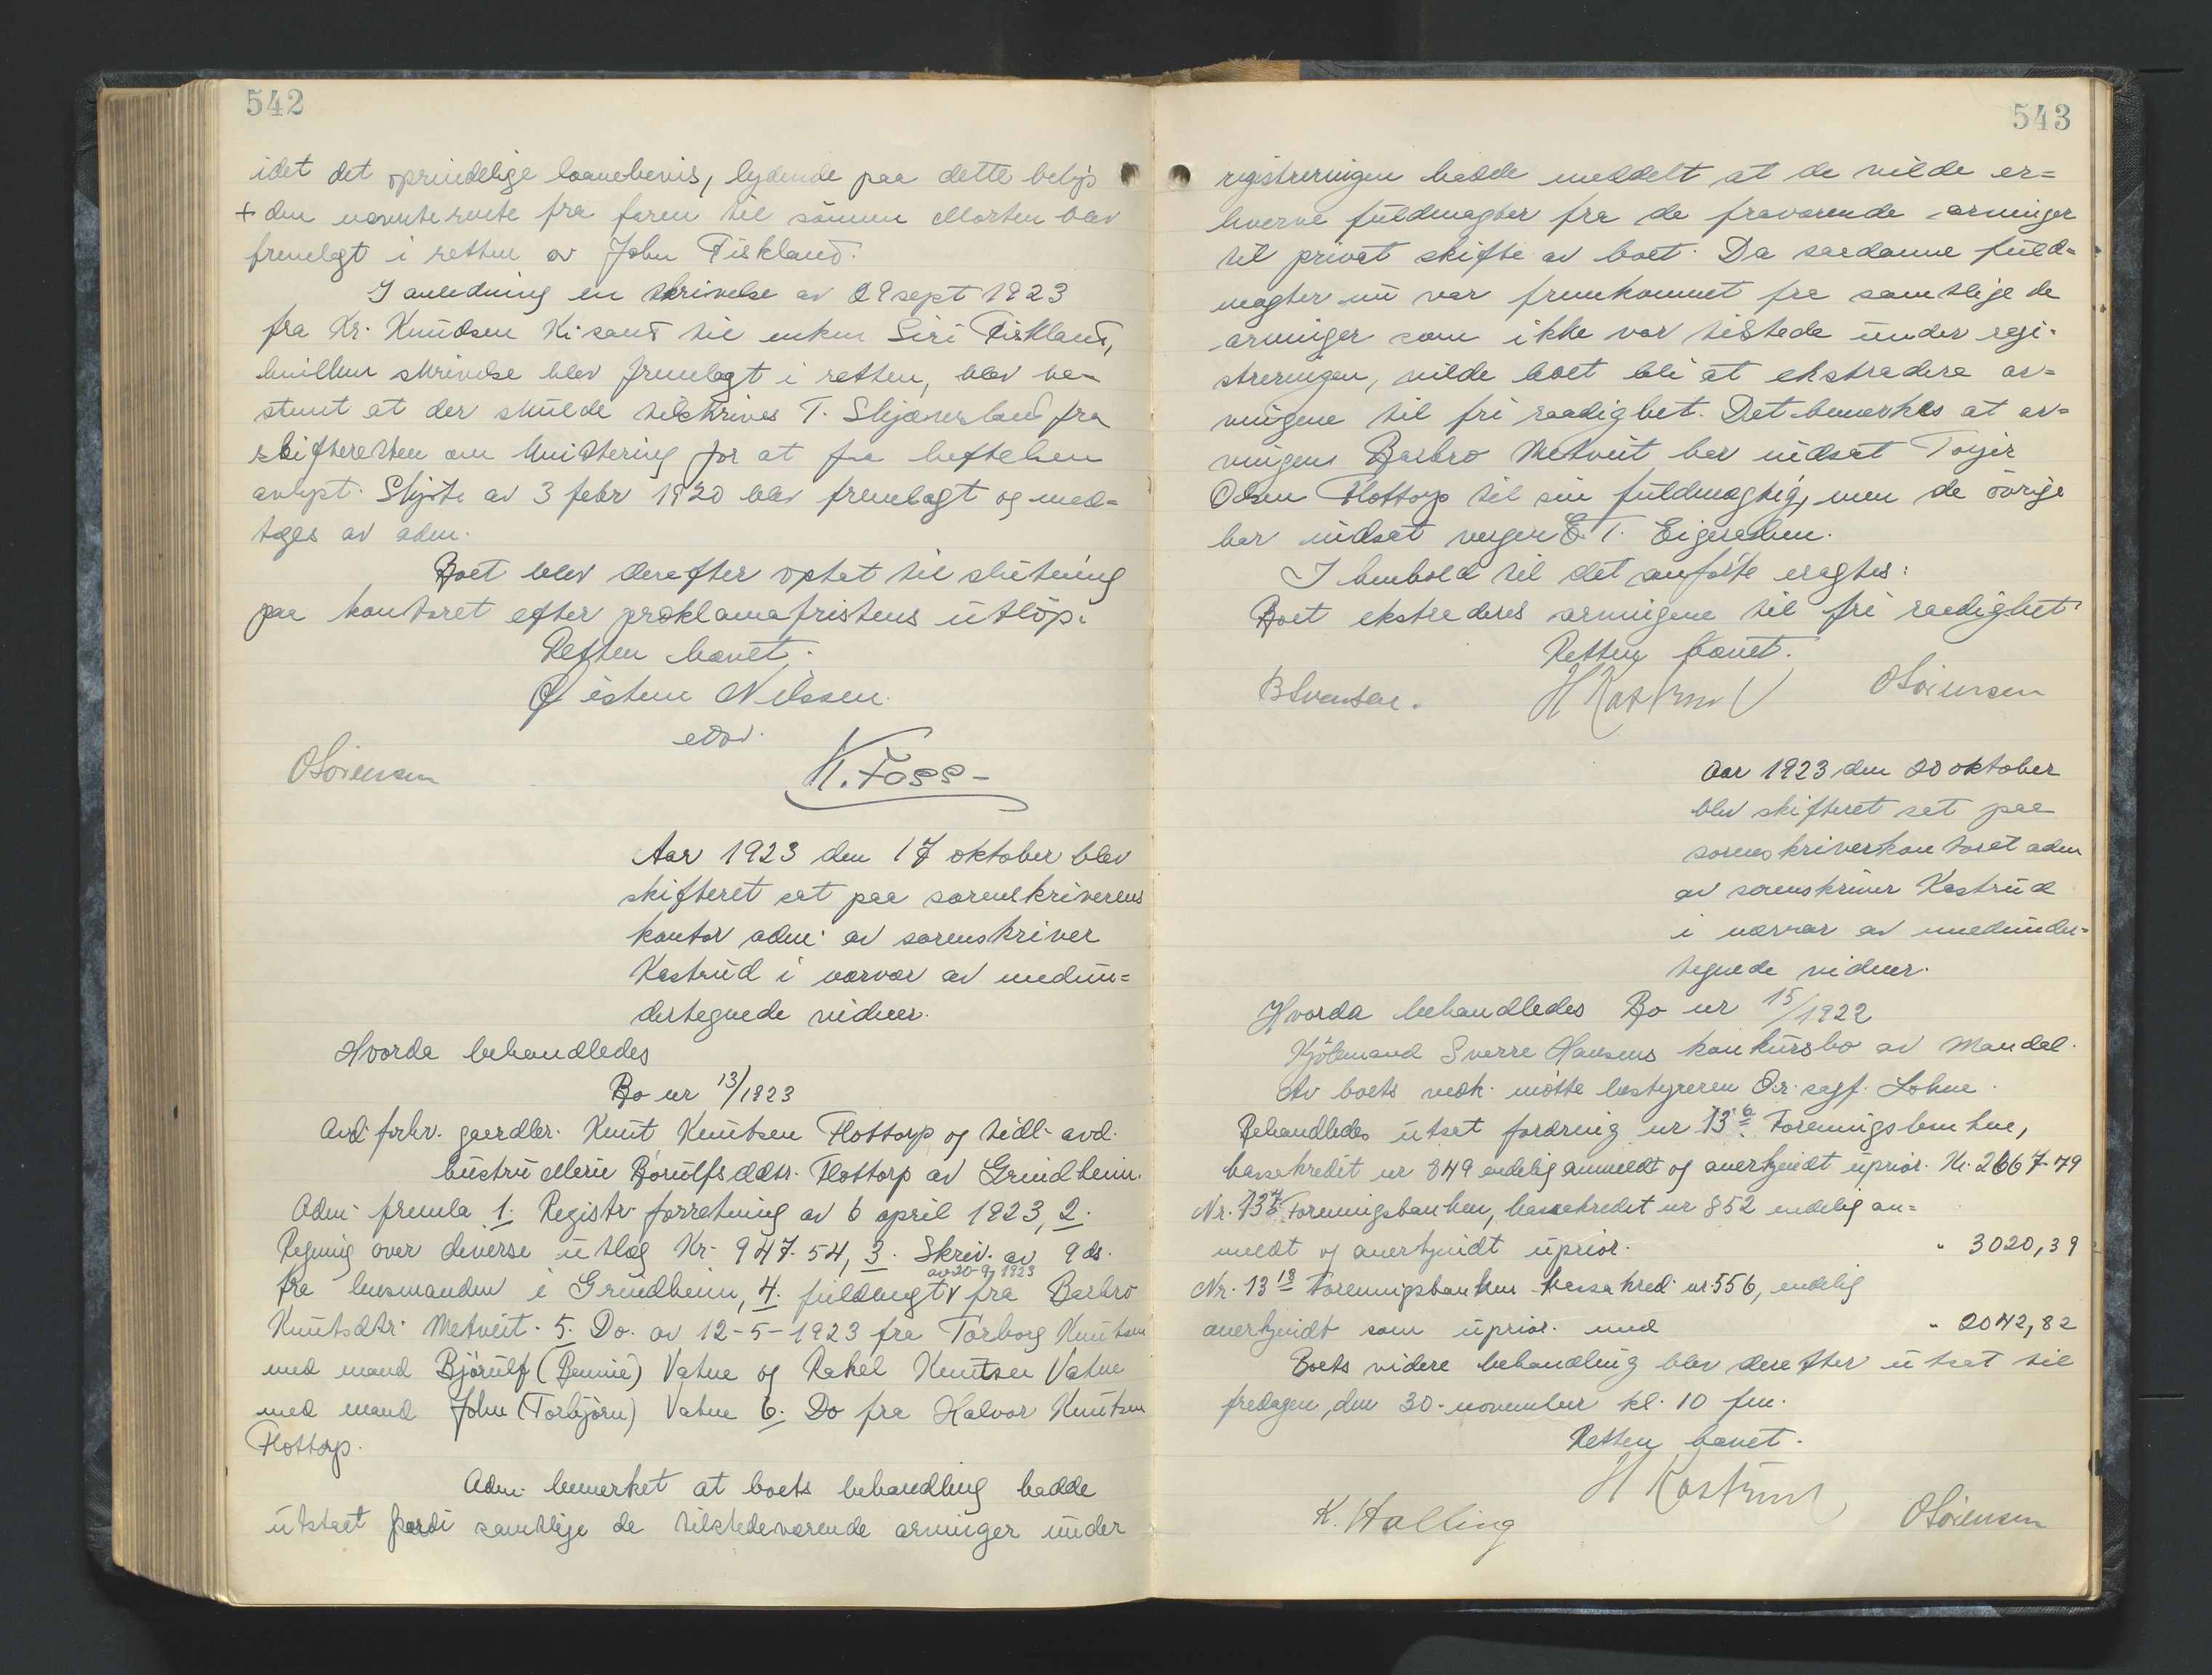 542
idet det oprindelige laanebevis, lydende paa dette beløp
+ den nævnte rente fra faren til sönnen Morten blev
fremlagt i retten av John Fiskland.
I anledning en skrivelse av 29 sept 1923
fra Kr. Knudsen Kr.sand til enken Siri Fiskland,
hvilken skrivelse blev fremlagt i retten, blev be-
stemt at der skulde tilskrives T. Skjævesland fra
skifteretten om kvittering for at faa heftelsen
avlyst. Skjøte av 3 febr 1920 blev fremlagt og med-
tages av adm.
Boet blev derefter optat til slutning
paa kontoret efter proklamafristens utlöp.
Retten hævet.
Øistein Nilssen.
edsv.
OSörensen
K. Foss-
Aar 1923 den 17 oktober blev
skifteret sat paa sorenskriverens
kontor adm. av sorenskriver
Kastrud i nærvær av medun=
dertegnede vidner.
Hvorda behandledes
Bo nr 13/1923
Avd. forhv. gaardbr. Knut Knutsen Flottorp og tidl. avd.
hustru Marie Bjorulfsdatr. Flottorp av Grindheim.
Adm. fremla 1. Registr. forretning av 6 april 1923, 2.
Regning over diverse utlæg Kr. 947.54, 3. Skriv. av 9 ds.
fra lensmanden i Grindheim, 4. fuldmagt av 20-9-1923 fra Barbro
Knutsdtr. Metveit. 5. Do. av 12-5-1923 fra Torborg Knutsen
med mand Björulf (Bennie) Vatne og Rakel Knutsen Vatne
med mand John (Torbjörn) Vatne 6. Do fra Halvor Knutsen
Flottorp.
Adm. bemerket at boets behandling hadde
utstaat fordi samtlige de tilstedeværende arvinger under
543
registreringen hadde meddelt at de vilde er=
hverve fuldmagter fra de fraværende arvinger
til privat skifte av boet. Da saadanne fuld=
magter nu var fremkommet fra samtlige de
arvinger som ikke var tilstede under regi-
streringen, vilde boet bli at ekstradere ar=
vingene til fri raadighet. Det bemerkes at ar=
vingen Barbro Metveit har indsat Torjer
Olsen Flottorp til sin fuldmægtig, men de övrige
har indsat verger E. T. Eigeraasen.
I henhold til det anförte eragtes:
Boet ekstraderes arvingene til fri raadighet.
Retten hævet.
BSvensen.
H Kastrud
OSörensen
Aar 1923 den 20 oktober
blev skifteret sat paa
sorenskriverkontoret adm
av sorenskriver Kastrud
i nærvær av medunder=
tegnede vidner.
Hvorda behandledes Bo nr 15/1922
Kjöbmand Sverre Hansens konkursbo av Mandal.
Av boets vedk. mötte bestyreren O.r. sagf. Lohne.
Behandledes utsat fordring nr 13 6. Foreningsbanken,
kassekredit nr 849 endelig anmeldt og anerkjendt uprior. Kr. 2667-79
Nr. 13 7 Foreningsbanken, kassekredit nr 852 endelig an=
meldt og anerkjendt uprior. " 3020,39
Nr. 13 13 Foreningsbanken kassakred. nr. 556, endelig
anerkjendt som uprior. med " 2042,82
Boets videre behandling blev derefter utsat til
fredagen den 30. november kl. 10 fm.
Retten hævet.
H Kastrud
K. Halling
OSörensen